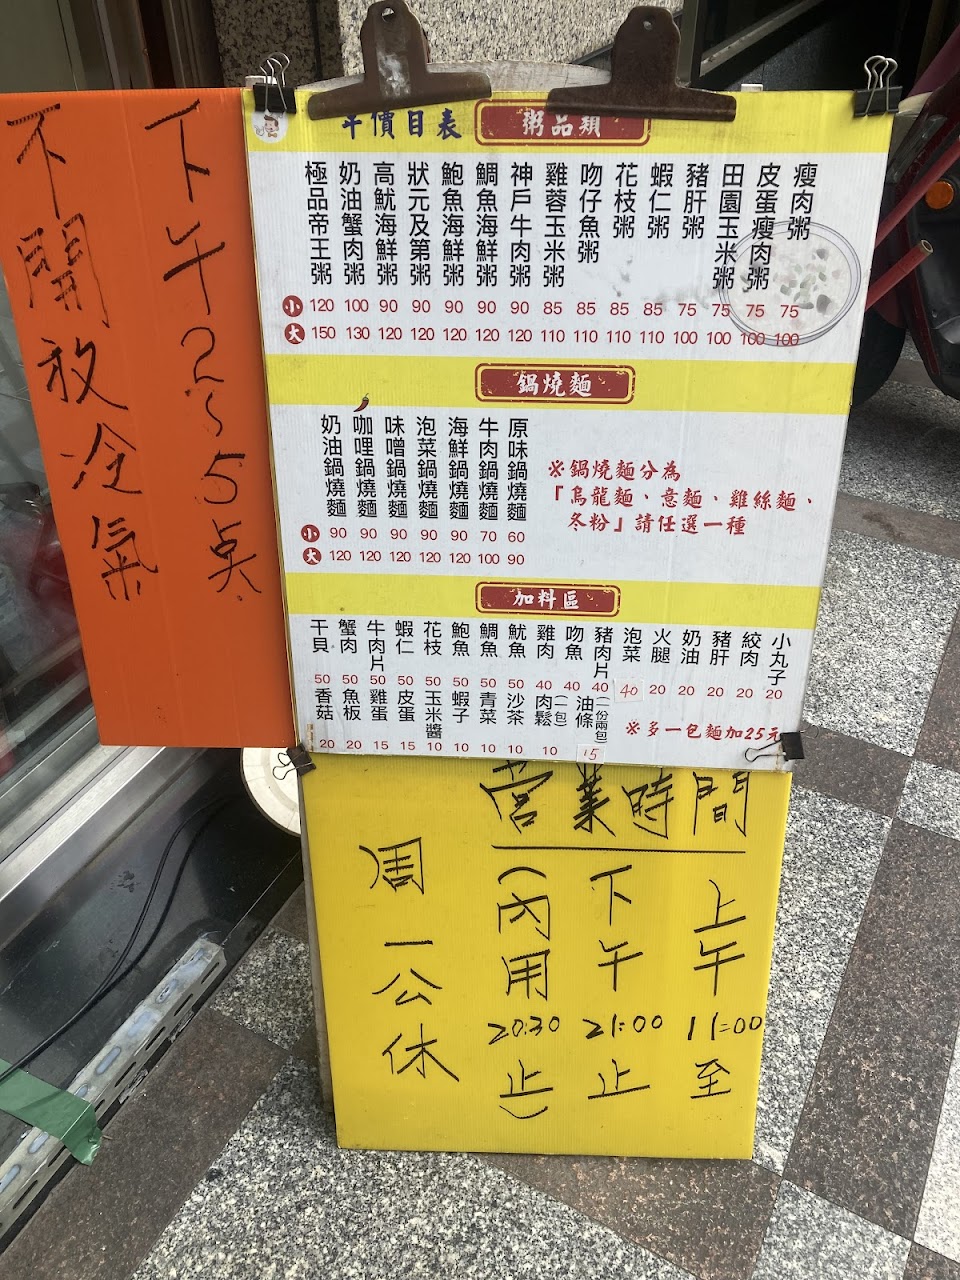 下午2~5点
不開放冷氣
價目表
粥品類
瘦肉粥
皮蛋瘦肉粥
田園玉米粥
豬肝粥
蝦仁粥
花枝粥
吻仔魚粥
雞蓉玉米粥
神戶牛肉粥
鯛魚海鮮粥
鮑魚海鮮粥
狀元及第粥
高魷海鮮粥
奶油蟹肉粥
極品帝王粥
小 120 100 90 90 90 90 90 85 85 85 85 75 75 75 75
大 150 130 120 120 120 120 120 110 110 110 110 100 100 100 100
鍋燒麵
原味鍋燒麵
牛肉鍋燒麵
海鮮鍋燒麵
泡菜鍋燒麵
味噌鍋燒麵
咖哩鍋燒麵
奶油鍋燒麵
小 90 90 90 90 90 70 60
大 120 120 120 120 120 100 90
※鍋燒麵分為
「烏龍麵、意麵、雞絲麵、
冬粉」請任選一種
加料區
小丸子
絞肉
豬肝
奶油
火腿
泡菜
豬肉片
吻魚
雞肉
魷魚
鯛魚
鮑魚
花枝
蝦仁
牛肉片
蟹肉
干貝
50 50 50 50 50 50 50 50 40 40 40 40 20 20 20 20 20
油條(一份兩包)
肉鬆(一包)
沙茶
青菜
蝦子
玉米醬
皮蛋
雞蛋
魚板
香菇
20 20 15 15 10 10 10 10 10 15
※多一包麵加25元
營業時間
上午11:00至
下午21:00止
(內用20:30止)
周一公休